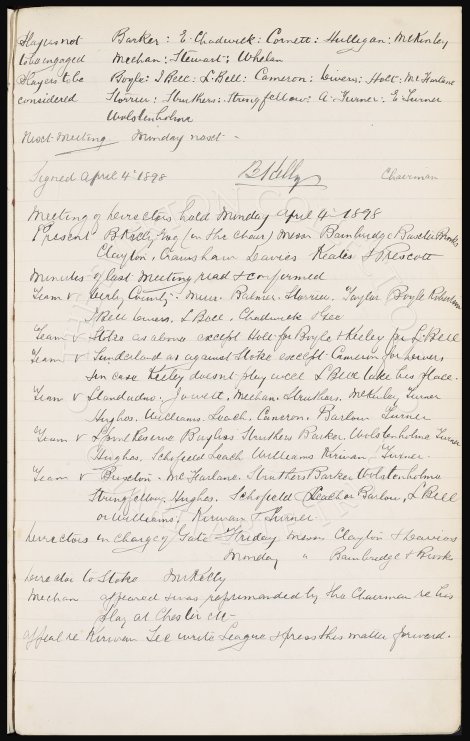 Players not Barker: E. Chadwick: Cornett: Hulligan: McKinley
to be engaged Meehan: Stewart: Whelan
Players to be Boyle: J Bell: L Bell: Cameron: Divers: Holt: McFarlane
considered Storrier: Struthers: Stringfellow: A. Turner: E Turner
Wolstenholme
Next Meeting Monday next -
Signed April 4th 1898 B Kelly Chairman
Meeting of Directors held Monday April 4th 1898
Present B. Kelly Esq (in the Chair) Messrs Bainbridge Baxter Brooks
Clayton, Crawshaw Davies Keates & Prescott
Minutes of last Meeting read & confirmed
Team v Derby County - Muir Balmer Storrier, Taylor Boyle Robertson
J Bell Divers, L Bell, Chadwick
Team v Stoke as above except Holt for Boyle & Keeley for L. Bell
Team v Sunderland as against Stoke except Cameron for Divers
In case Keeley doesn't play well L Bell take his place.
Team v Jowett, Meehan Struthers, McKinley Turner
Hughes, Williams, Leach, Cameron, Barlow Turner
Team v Reserve Bayliss Struthers Barker, Wolstenholme Turner
Hughes, Schofield Leach Williams Kirwan Turner.
Team v Buxton - McFarlane, Struthers Barker Wolstenholme
Stringfellow, Hughes, Schofield Leach or Barlow, L Bell
or Williams, Kirwan Turner.
Directors in charge of Gate Friday Messrs Clayton & Davies
Monday " Bainbridge & Brooks
Director to Stoke Mr Kelly
Meehan appeared & was reprimanded by the Chairman re his
play at Chester etc -
Appeal re Kirwan Sec write League & press this matter forward.